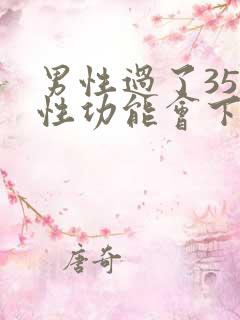 男性過了35
性功能會下
唐奇